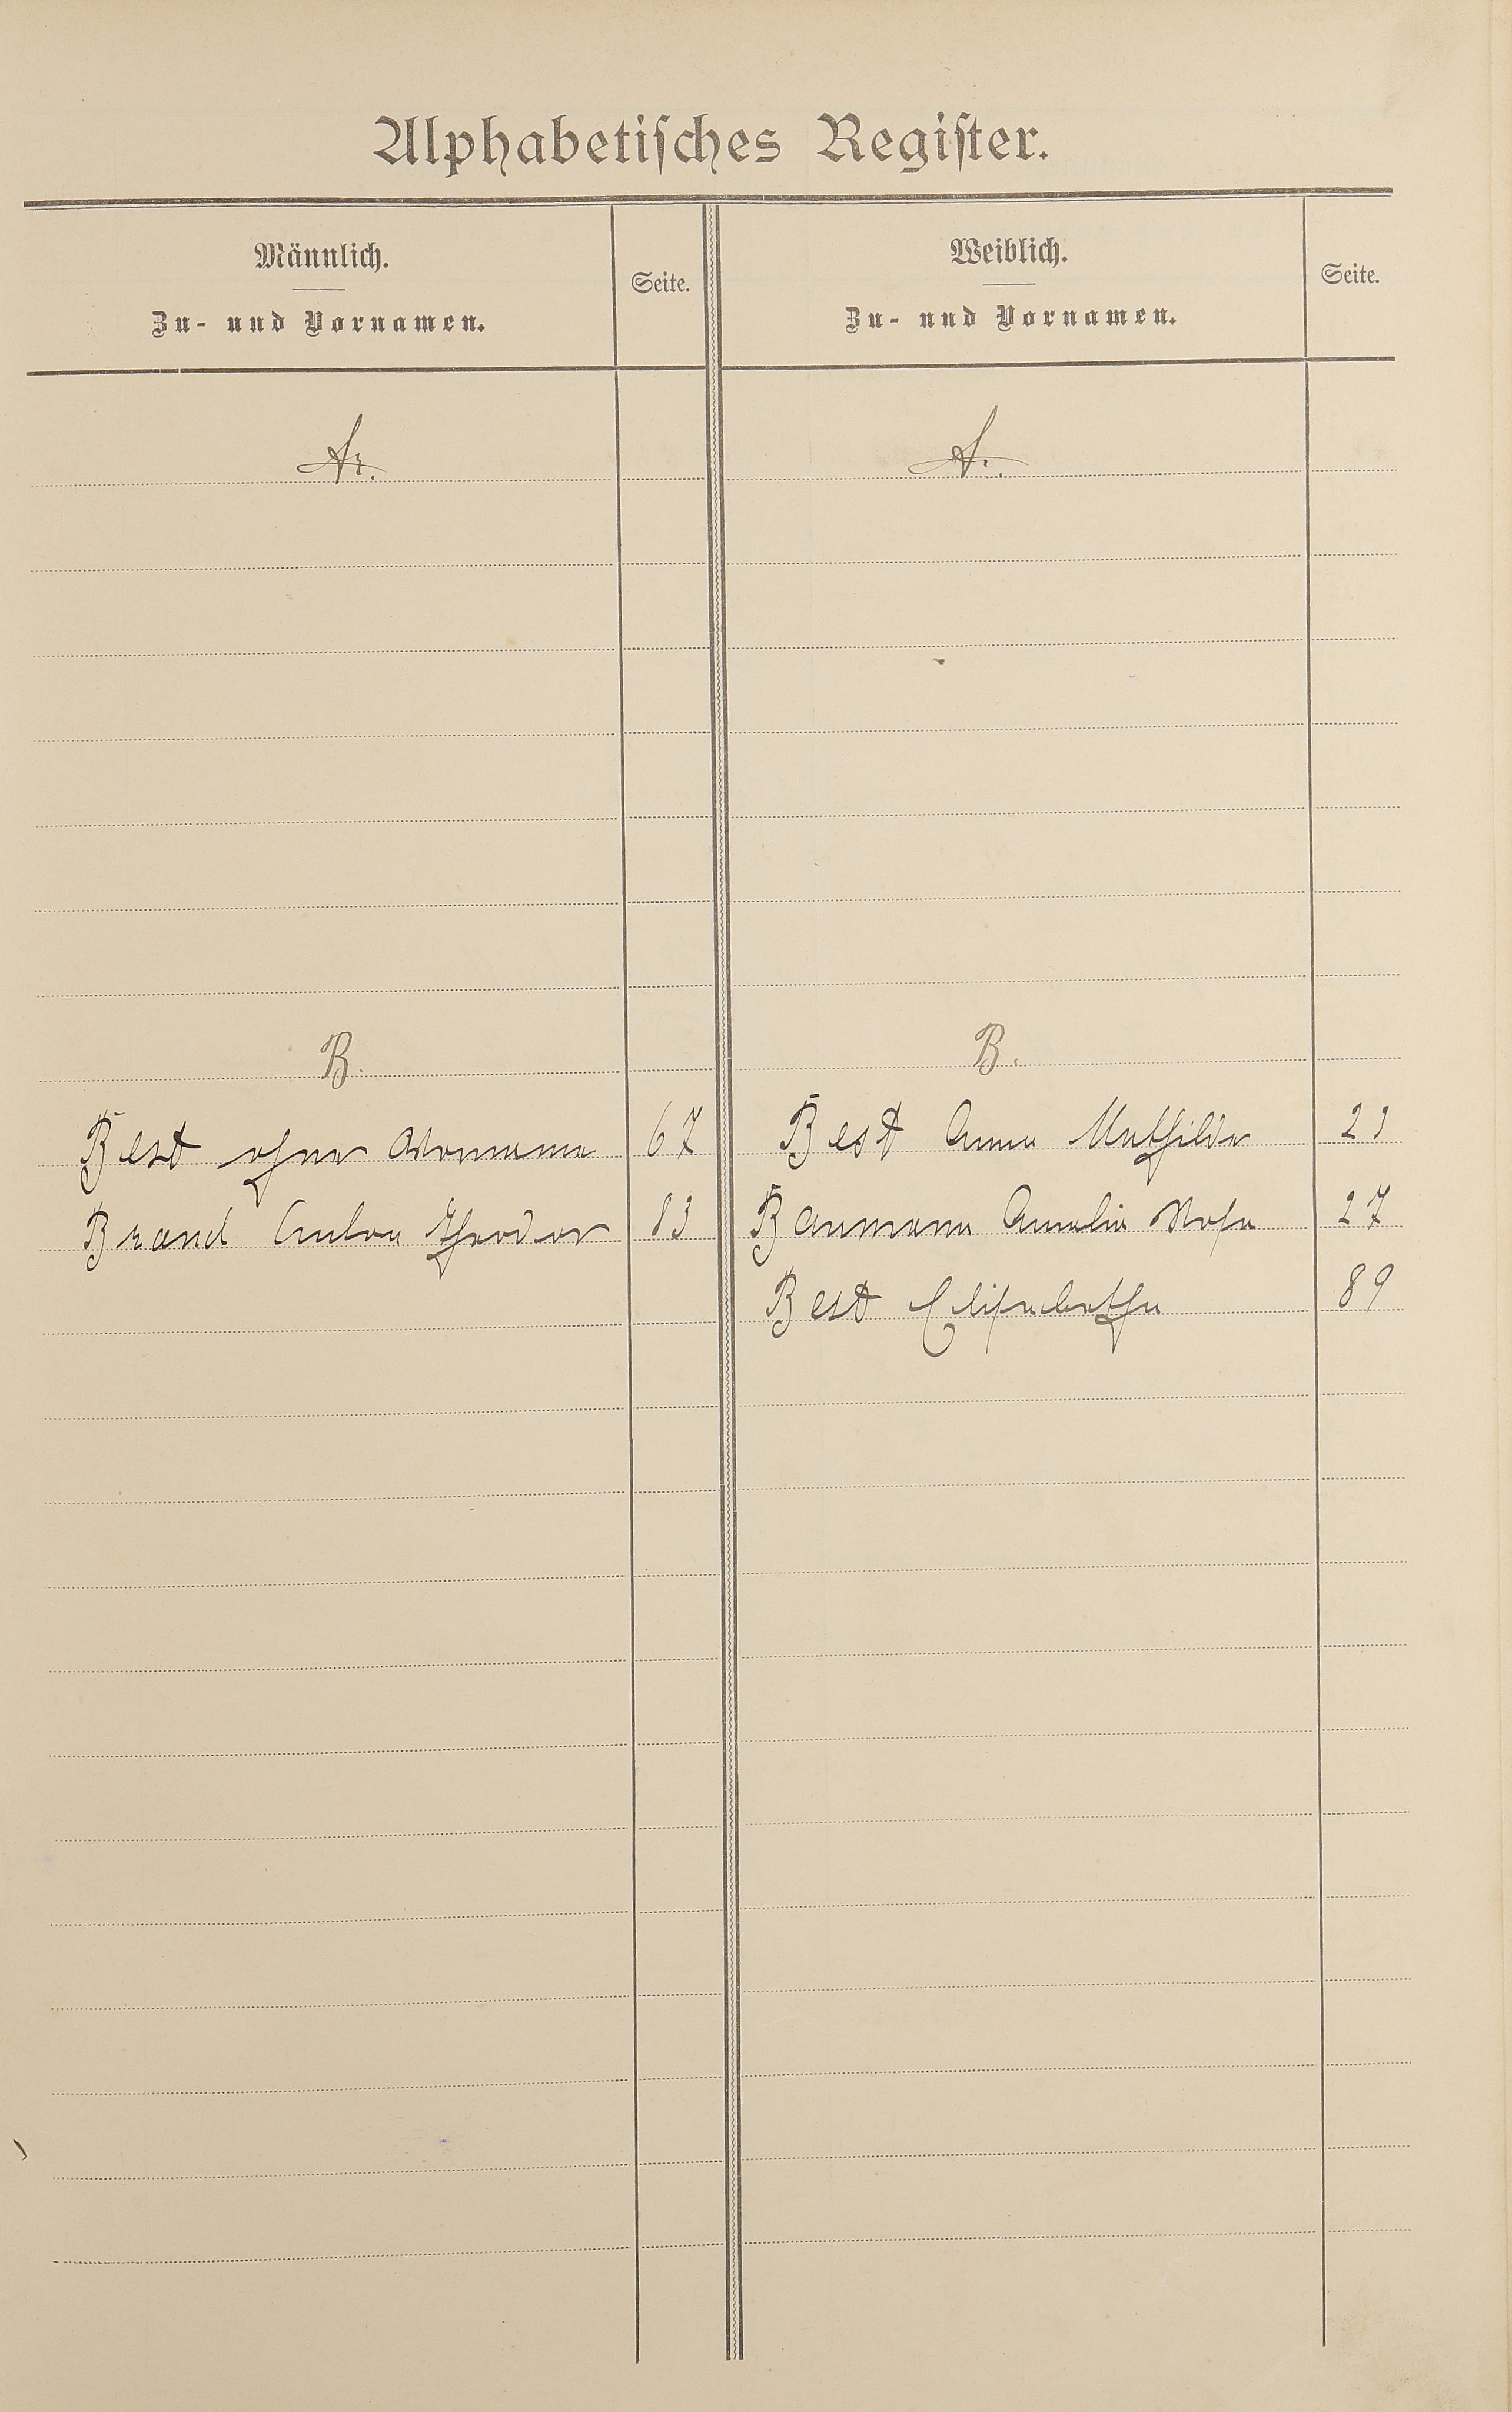 Alphabetisches Register.
Männlich.
Zu- und Vornamen.
Seite.
Weiblich.
Zu- und Vornamen.
Seite.
A.
A.
B.
B.
Best ohne Vorname 67
Best Anna Mathilde 23
Brand Anton Theodor 83
Baumann Amalie Rosa 27
Best Elisabetha 89